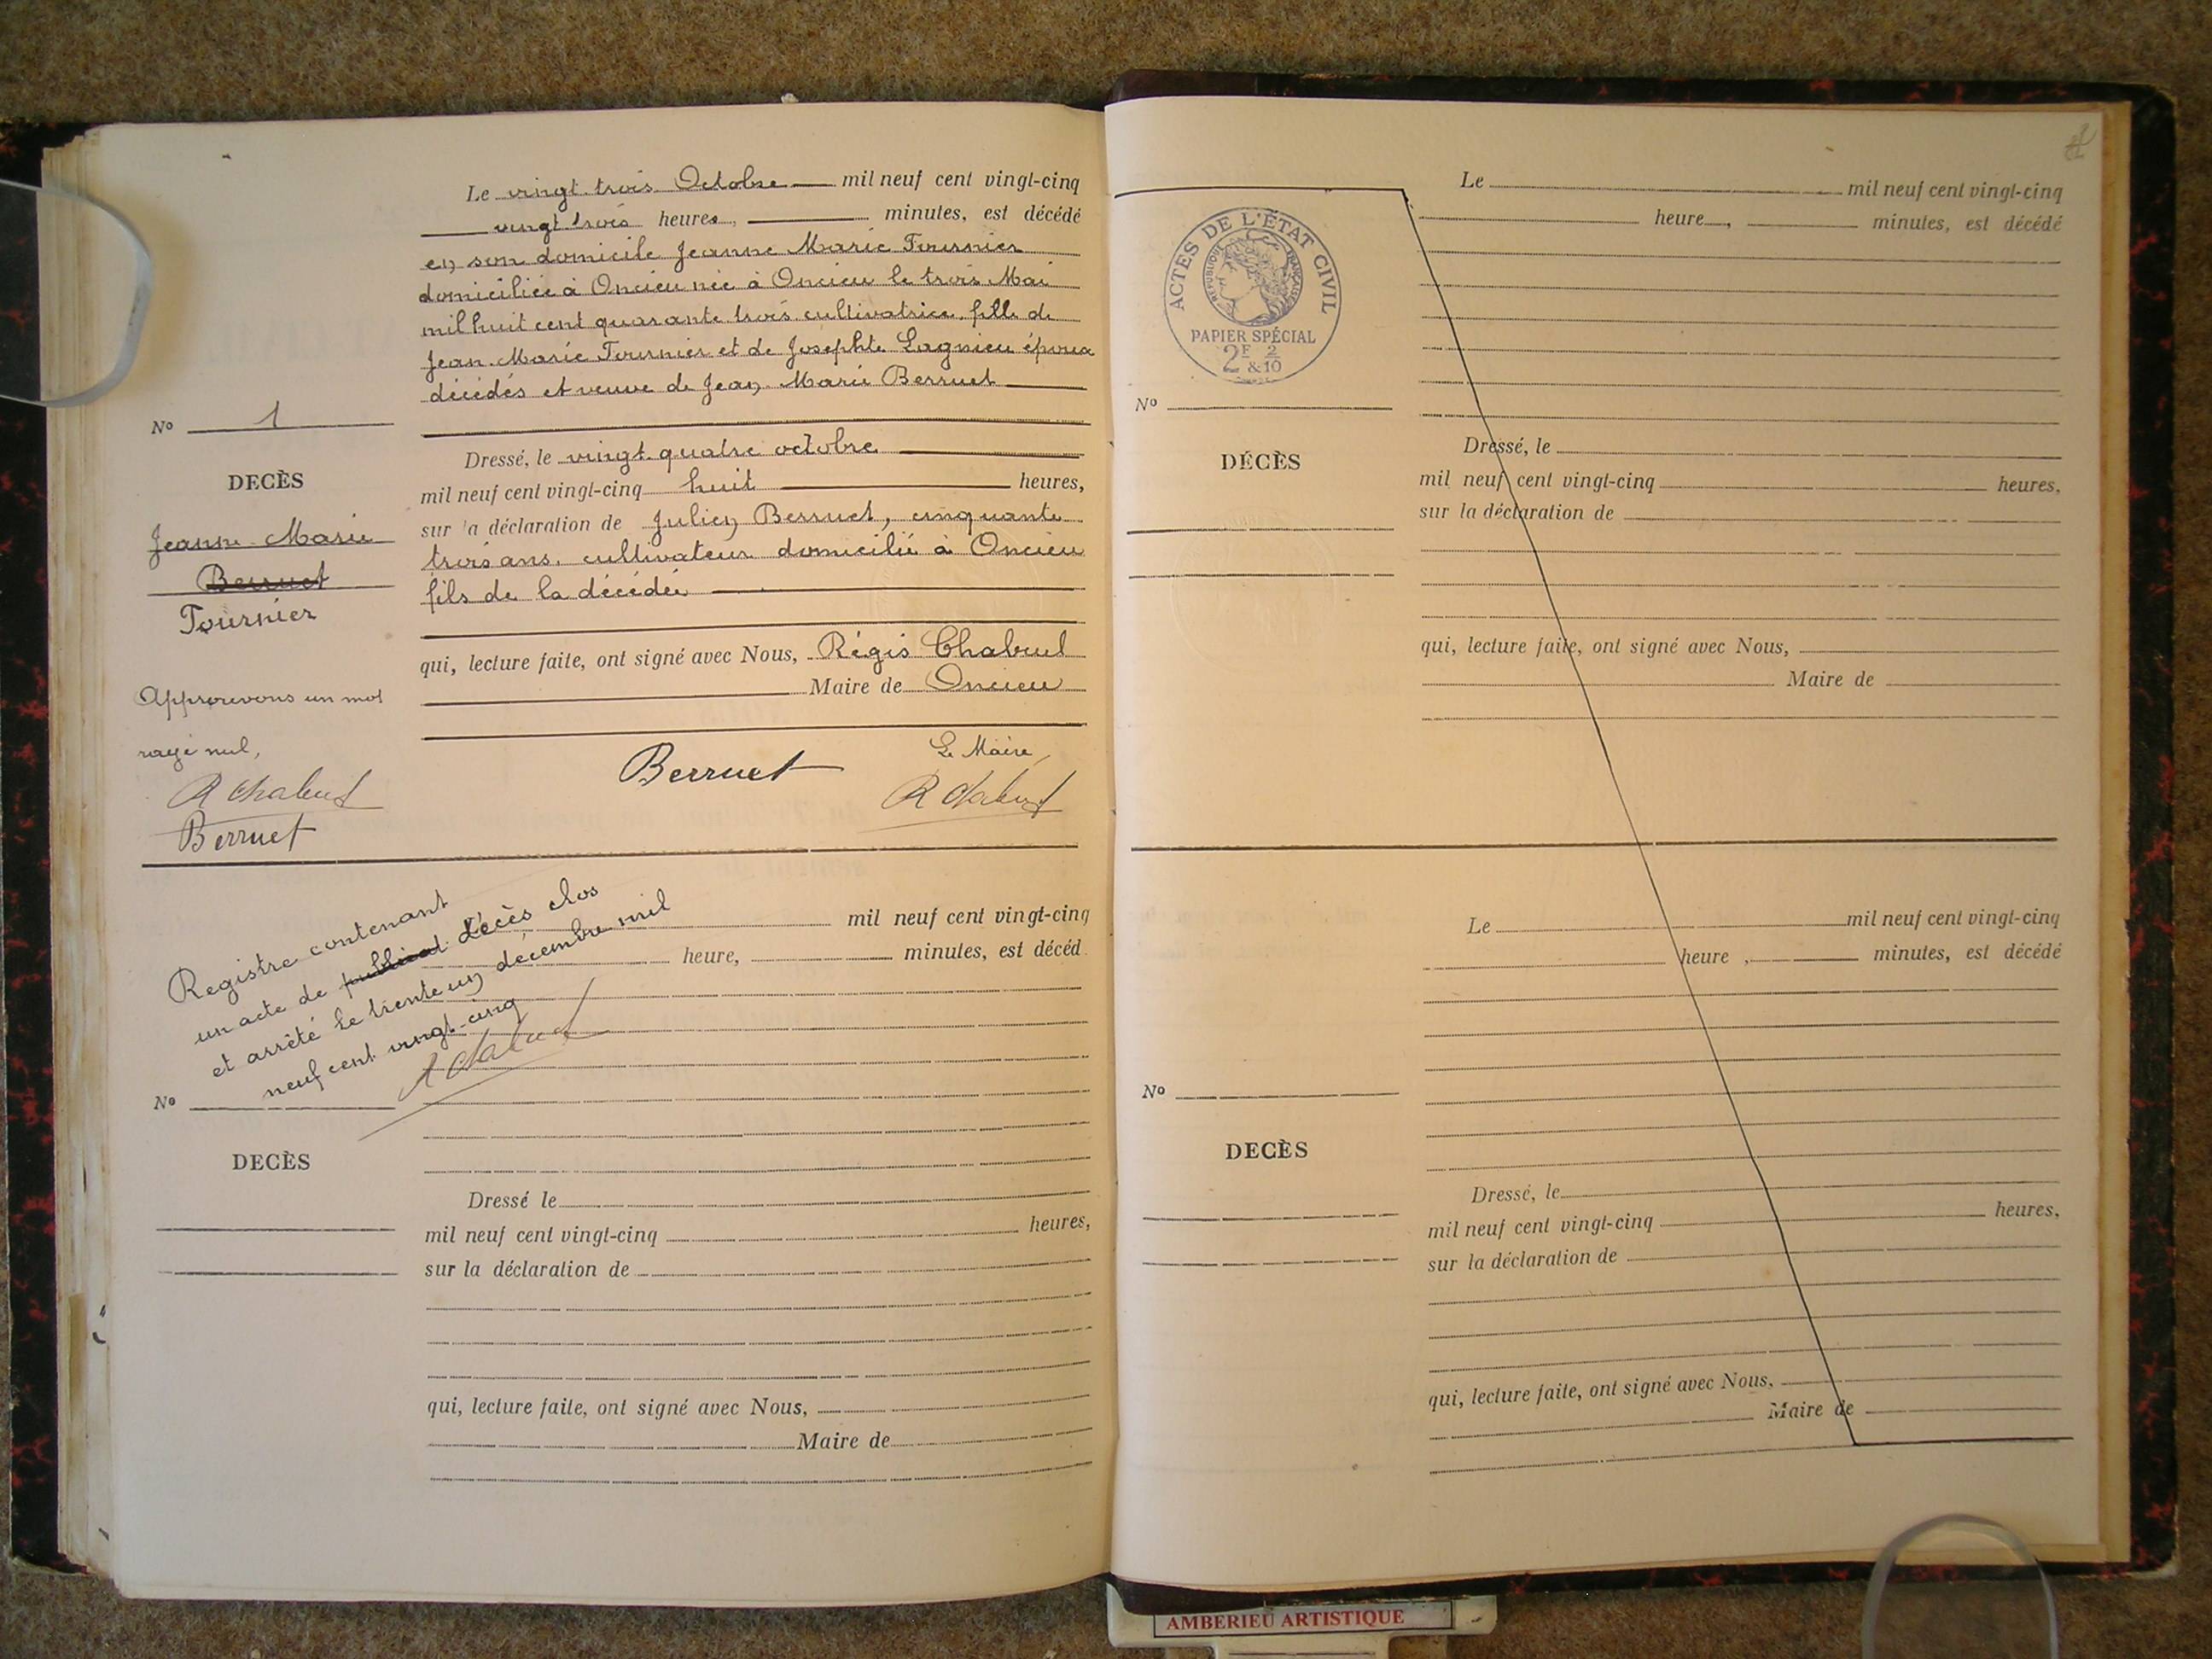 Le vingt-trois Octobre mil neuf cent vingt-cinq
vingt trois heures, minutes, est décédé
en son domicile Jeanne Marie Tournier
domiciliée à Oncieu née à Oncieu le trois Mai
mil huit cent quarante trois cultivatrice, fille de
Jean-Marie Tournier et de Josephte Lagnieu époux
décédés et veuve de Jean-Marie Berruet
No 1
DECÈS
Jeanne-Marie
Berruet
Tournier
Approuvons un mot
rayé nul,
R Chabud
Berruet
Dressé, le vingt-quatre octobre
mil neuf cent vingt-cinq huit heures,
sur la déclaration de Julien Berruet, cinquante
trois ans, cultivateur domicilié à Oncieu
fils de la décédée
qui, lecture faite, ont signé avec Nous, Régis Chabud
Maire de Oncieu
Berruet
Le Maire,
R Chabud
Registre contenant
un acte de décès clos
et arrêté le trente un décembre mil
neuf cent vingt-cinq
R Chabud
mil neuf cent vingt-cinq
heure, minutes, est décéd
No
DECÈS
Dressé le
mil neuf cent vingt-cinq heures,
sur la déclaration de
qui, lecture faite, ont signé avec Nous,
Maire de
ACTES DE L'ÉTAT CIVIL
RÉPUBLIQUE FRANÇAISE
PAPIER SPÉCIAL
2F & 2/10
No
DÉCÈS
Le mil neuf cent vingt-cinq
heure, minutes, est décédé
Dressé, le
mil neuf cent vingt-cinq heures.
sur la déclaration de
qui, lecture faite, ont signé avec Nous,
Maire de
Le mil neuf cent vingt-cinq
heure, minutes, est décédé
No
DECÈS
Dressé, le
mil neuf cent vingt-cinq heures,
sur la déclaration de
qui, lecture faite, ont signé avec Nous,
Maire de
AMBERIEU ARTISTIQUE